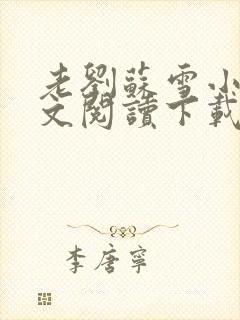 老劉蘇雪小
文閱讀下載
李唐寧